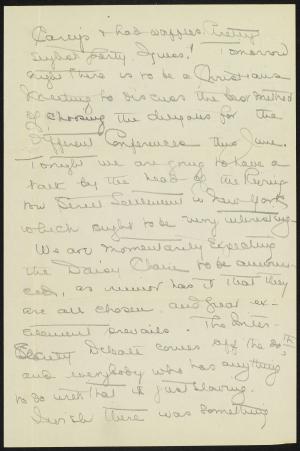 Careys & had waffles. Pretty
stylish party, I guess! Tomorrow
night there is to be a Christians
Meeting to discuss the best method
of choosing the delegates for the
different Conferences this June.
Tonight we are going to have a
talk by the head of the Rivington
Street Settlement in New York
which ought to be very interesting.
We are momentarily expecting
the Daisy Chain to be announ-
ced, as rumor has it that they
are all chosen and great ex-
citement prevails. The Inter-
Society Debate comes off the 30th
and everybody who has anything
to do with that is just slaving.
I wish there was something